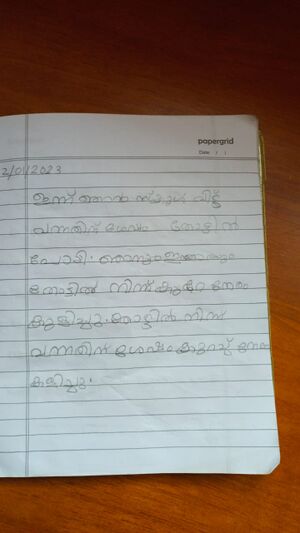 papergrid
Date: / /
2/01/2023
ഇന്ന് ഞാൻ സ്കൂൾ വിട്ട്
വന്നതിന് ശേഷം തോട്ടിൽ
പോയി. ഞാനും
തോട്ടിൽ നിന്ന് കുറേ നേരം
കുളിച്ചു. തോട്ടിൽ നിന്ന്
വന്നതിന് ശേഷം കുറച്ച് നേരം
കളിച്ചു.